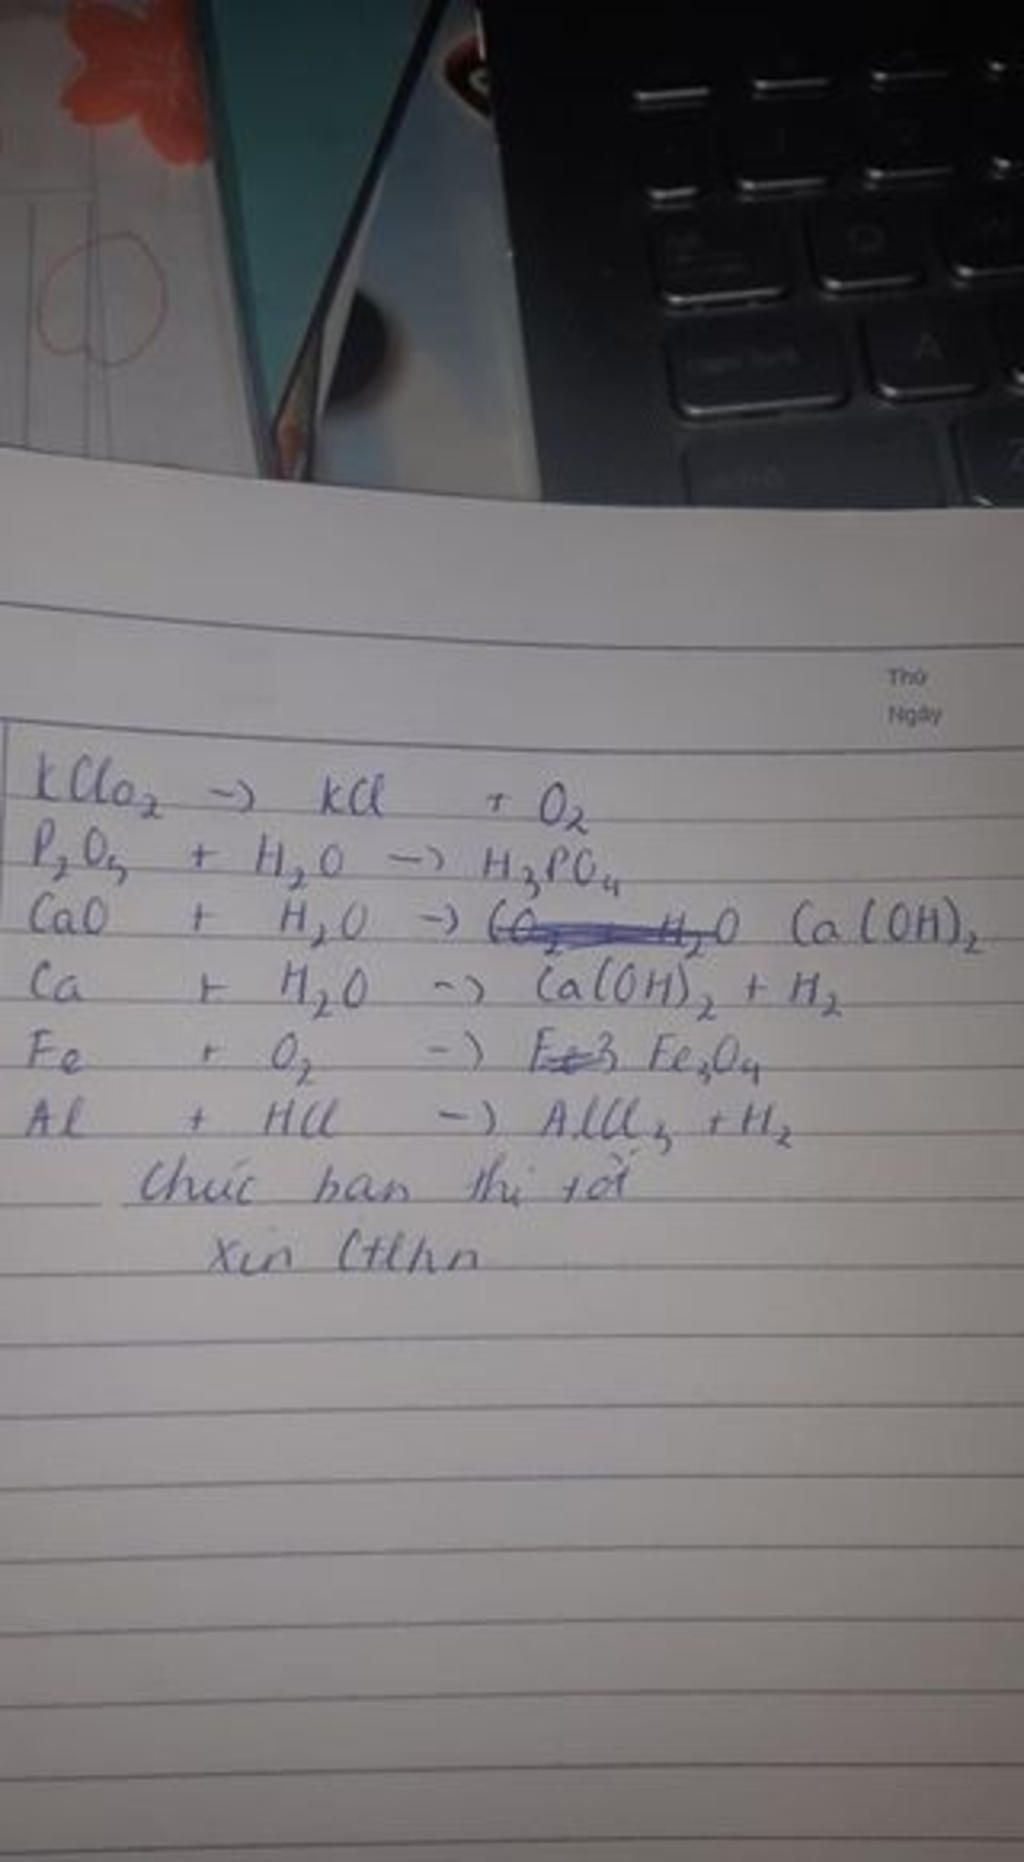 Thứ
Ngày
KClO₂ -> KCl + O₂
P₂O₅ + H₂O -> H₃PO₄
CaO + H₂O -> Ca(OH)₂
Ca + H₂O -> Ca(OH)₂ + H₂
Fe + O₂ -> Fe₃O₄
Al + HCl -> AlCl₃ + H₂
Chúc bạn thi tốt
Xin
A